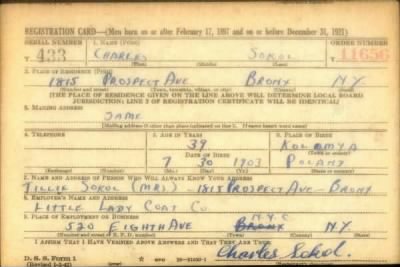 REGISTRATION CARD—(Men born on or after February 17, 1897 and on or before December 31, 1921)
SERIAL NUMBER 1. NAME (Print) ORDER NUMBER
T 433 CHARLES SOKOL T 11656
(First) (Middle) (Last)
2. PLACE OF RESIDENCE (Print)
1815 PROSPECT AVE BRONX N.Y.
(Number and street) (Town, township, village, or city) (County) (State)
[THE PLACE OF RESIDENCE GIVEN ON THE LINE ABOVE WILL DETERMINE LOCAL BOARD
JURISDICTION; LINE 2 OF REGISTRATION CERTIFICATE WILL BE IDENTICAL]
3. MAILING ADDRESS
SAME
[Mailing address if other than place indicated on line 2. If same insert word same]
4. TELEPHONE 5. AGE IN YEARS 6. PLACE OF BIRTH
39 KOLOMYA
DATE OF BIRTH
7 30 1903 POLAND
7. NAME AND ADDRESS OF PERSON WHO WILL ALWAYS KNOW YOUR ADDRESS
TILLIE SOKOL (MRS) — 1815 PROSPECT AVE — BRONX
8. EMPLOYER'S NAME AND ADDRESS
LITTLE LADY COAT CO
9. PLACE OF EMPLOYMENT OR BUSINESS N.Y.C
520 EIGHTH AVE BRONX N.Y.
(Number and street or R. F. D. number) (Town) (County) (State)
I AFFIRM THAT I HAVE VERIFIED ABOVE ANSWERS AND THAT THEY ARE TRUE.
D. S. S. Form 1 Charles Sokol.